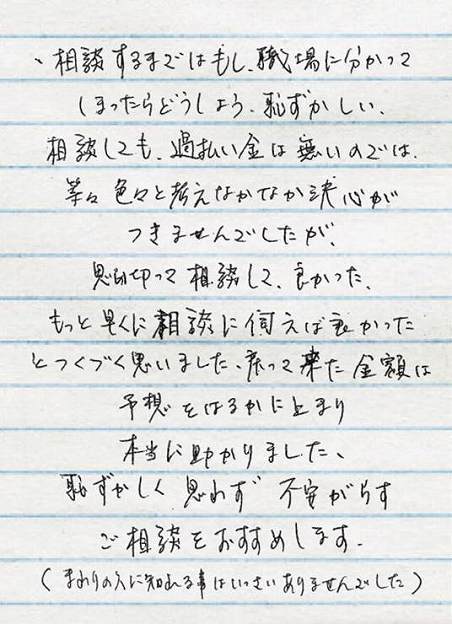 、相談するまではもし、職場に分かって
しまったらどうしよう、恥ずかしい、
相談しても、過払い金は無いのでは、
等々色々と考えなかなか決心が
つきませんでしたが、
思い切って相談して、良かった、
もっと早くに相談に伺えば良かった
とつくづく思いました、戻って来た金額は
予想をはるかに上まり
本当に助かりました、
恥ずかしく思わず不安がらず
ご相談をおすすめします.
(まわりの人に知れる事はいっさいありませんでした)